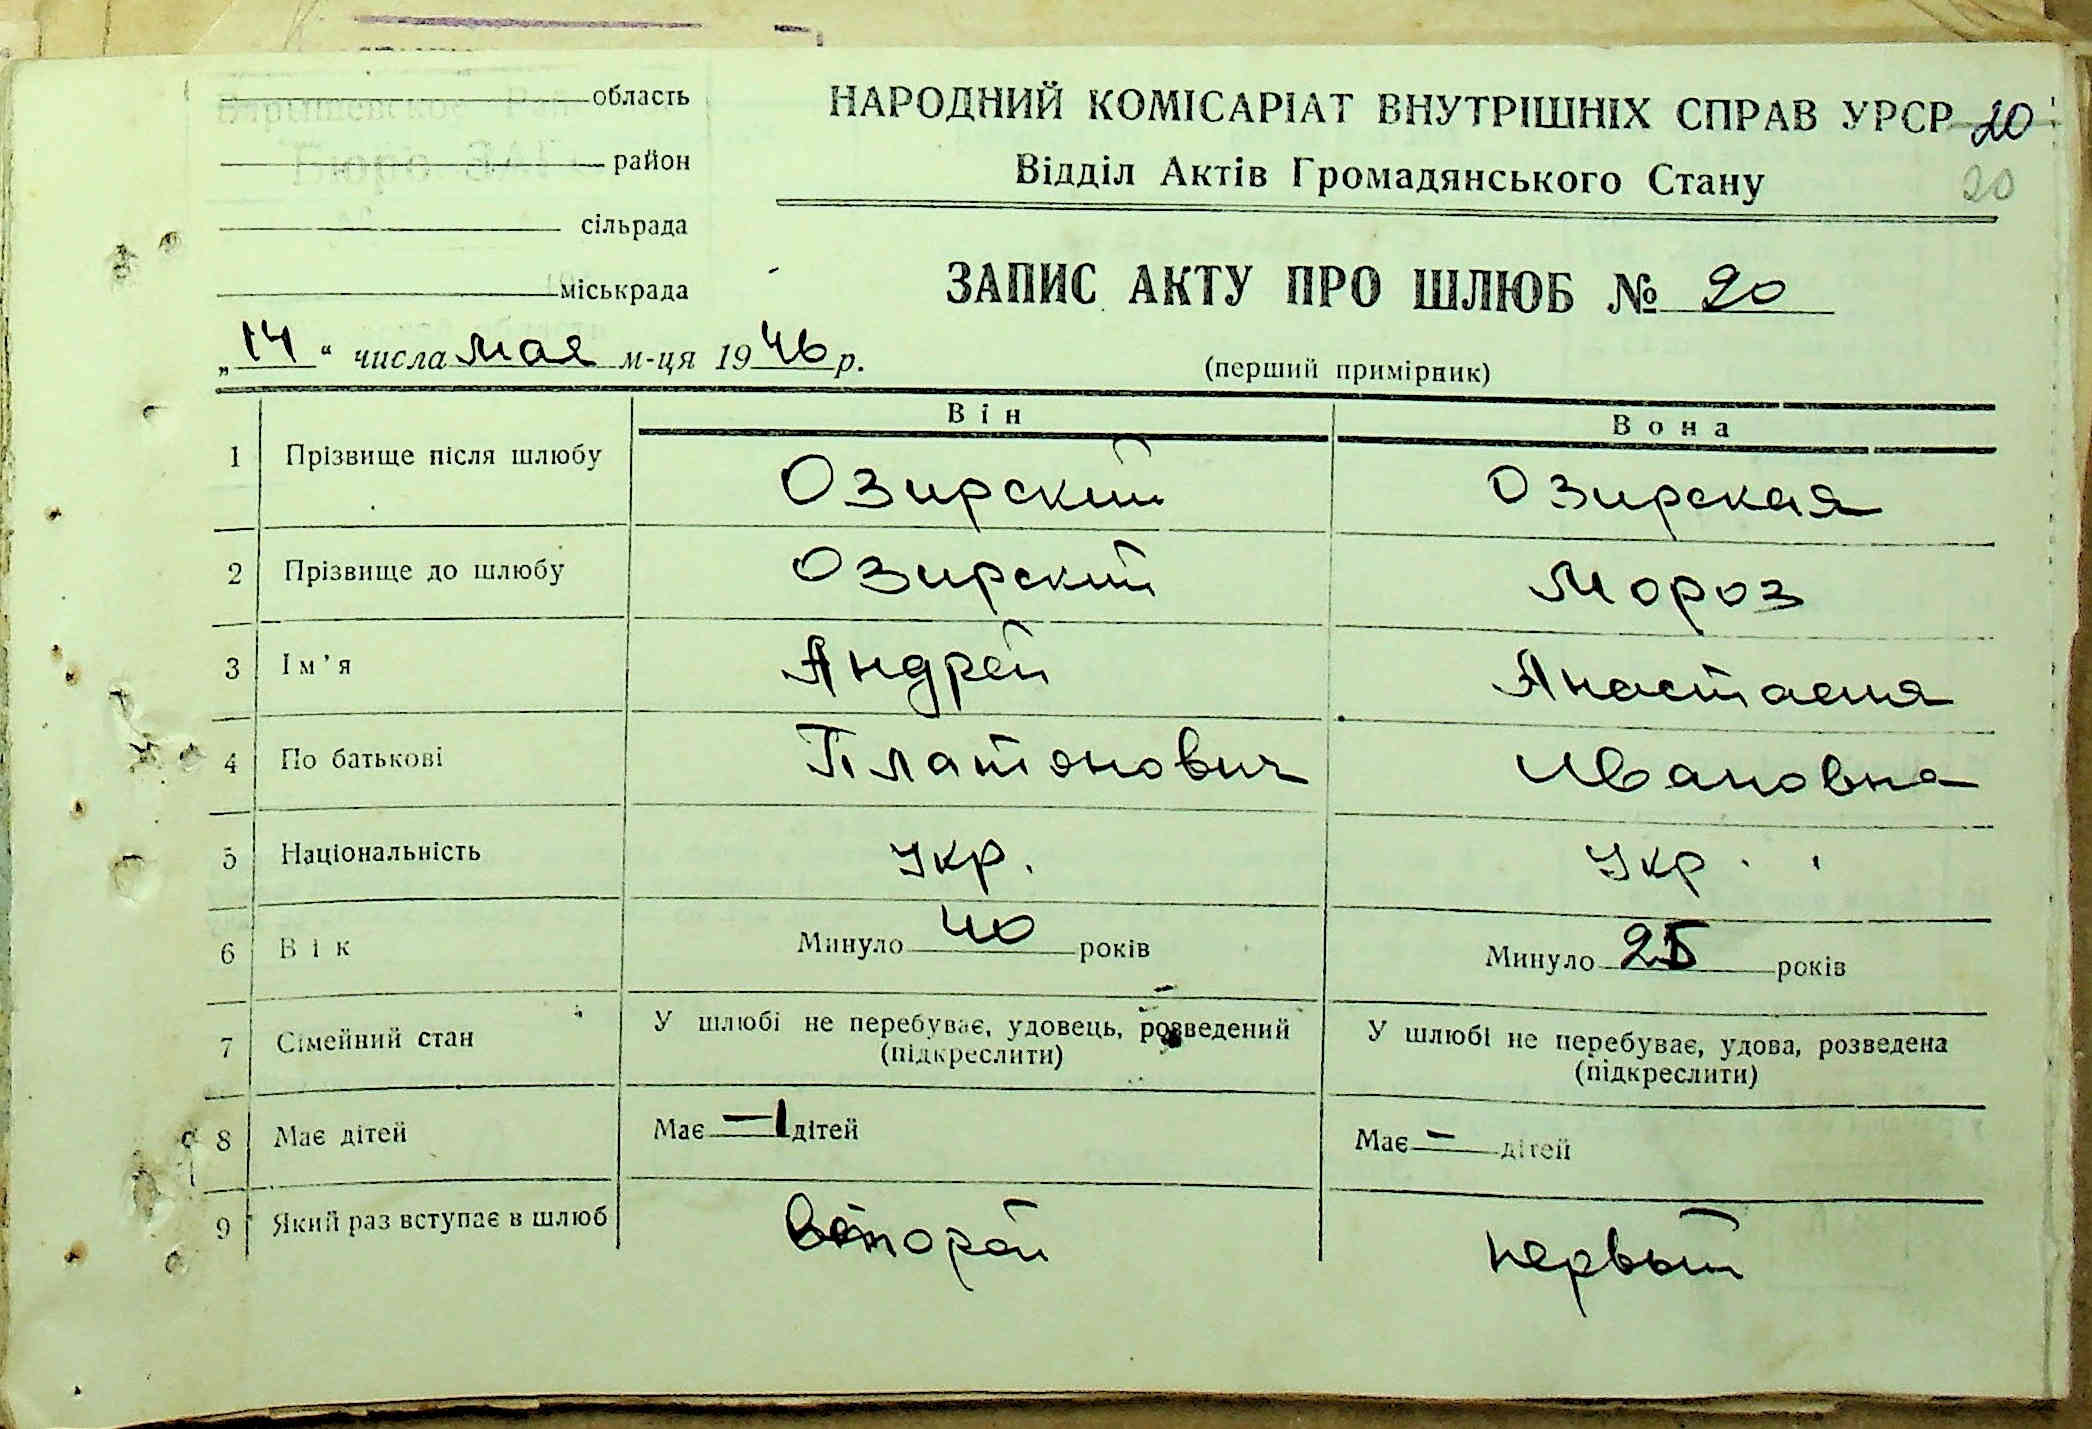 область
район
сільрада
міськрада
НАРОДНИЙ КОМІСАРІАТ ВНУТРІШНІХ СПРАВ УРСР 20
Відділ Актів Громадянського Стану 20
ЗАПИС АКТУ ПРО ШЛЮБ № 20
„14“ числа мая м-ця 1946 р.
(перший примірник)
Він Вона
1 Прізвище після шлюбу Озирский Озирская
2 Прізвище до шлюбу Озирский Мороз
3 Ім'я Андрей Анастасия
4 По батькові Платонович Ивановна
5 Національність Укр. Укр.
6 Вік Минуло 40 років Минуло 25 років
7 Сімейний стан У шлюбі не перебуває, удовець, розведений У шлюбі не перебуває, удова, розведена
(підкреслити) (підкреслити)
8 Має дітей Має —1 дітей Має — дітей
9 Який раз вступає в шлюб второй первый